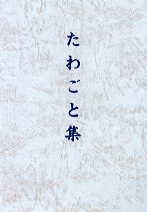 たわごと集